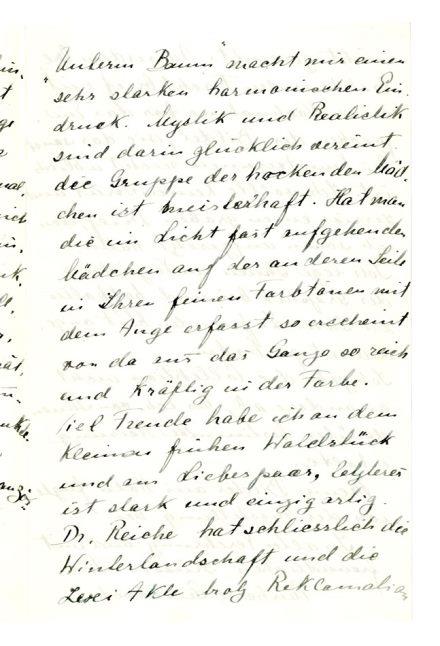 "Unterm Baum" macht mir einen
sehr starken harmonischen Ein-
druck. Mystik und Realistik
sind darin glücklich vereint.
die Gruppe der hockenden Mäd-
chen ist meisterhaft. Hat man
die im Licht fast aufgehenden
Mädchen auf der anderen Seite
in Ihren feinen Farbtönen mit
dem Auge erfasst so erscheint
von da aus das Ganze so reich
und kräftig in der Farbe.
Viel Freude habe ich an dem
kleinen frühen Waldstück
und am Liebespaar, Letzteres
ist stark und einzigartig.
Dr. Reiche hat schliesslich die
Winterlandschaft und die
zwei Akte trotz Reklamation